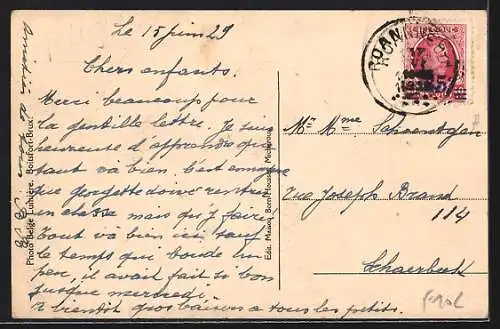 Le 15 juin 29
Chers enfants.
Merci beaucoup pour
la gentille lettre. Je suis
heureuse d'apprendre que
tout va bien. C'est ennuyeux
que Georgette doive rentrer
en classe mais qu'y faire
Tout va bien ici, sauf
le temps qui boude un
peu, il avait fait si bon
jusque mercredi.
A bientôt gros baisers a tous les petits.
Amitiés de
Photo Belge Lumière. Boitsfort-Brux.
Edit. Maison
M. Mme
Rue Joseph Brand
114
Schaerbeek